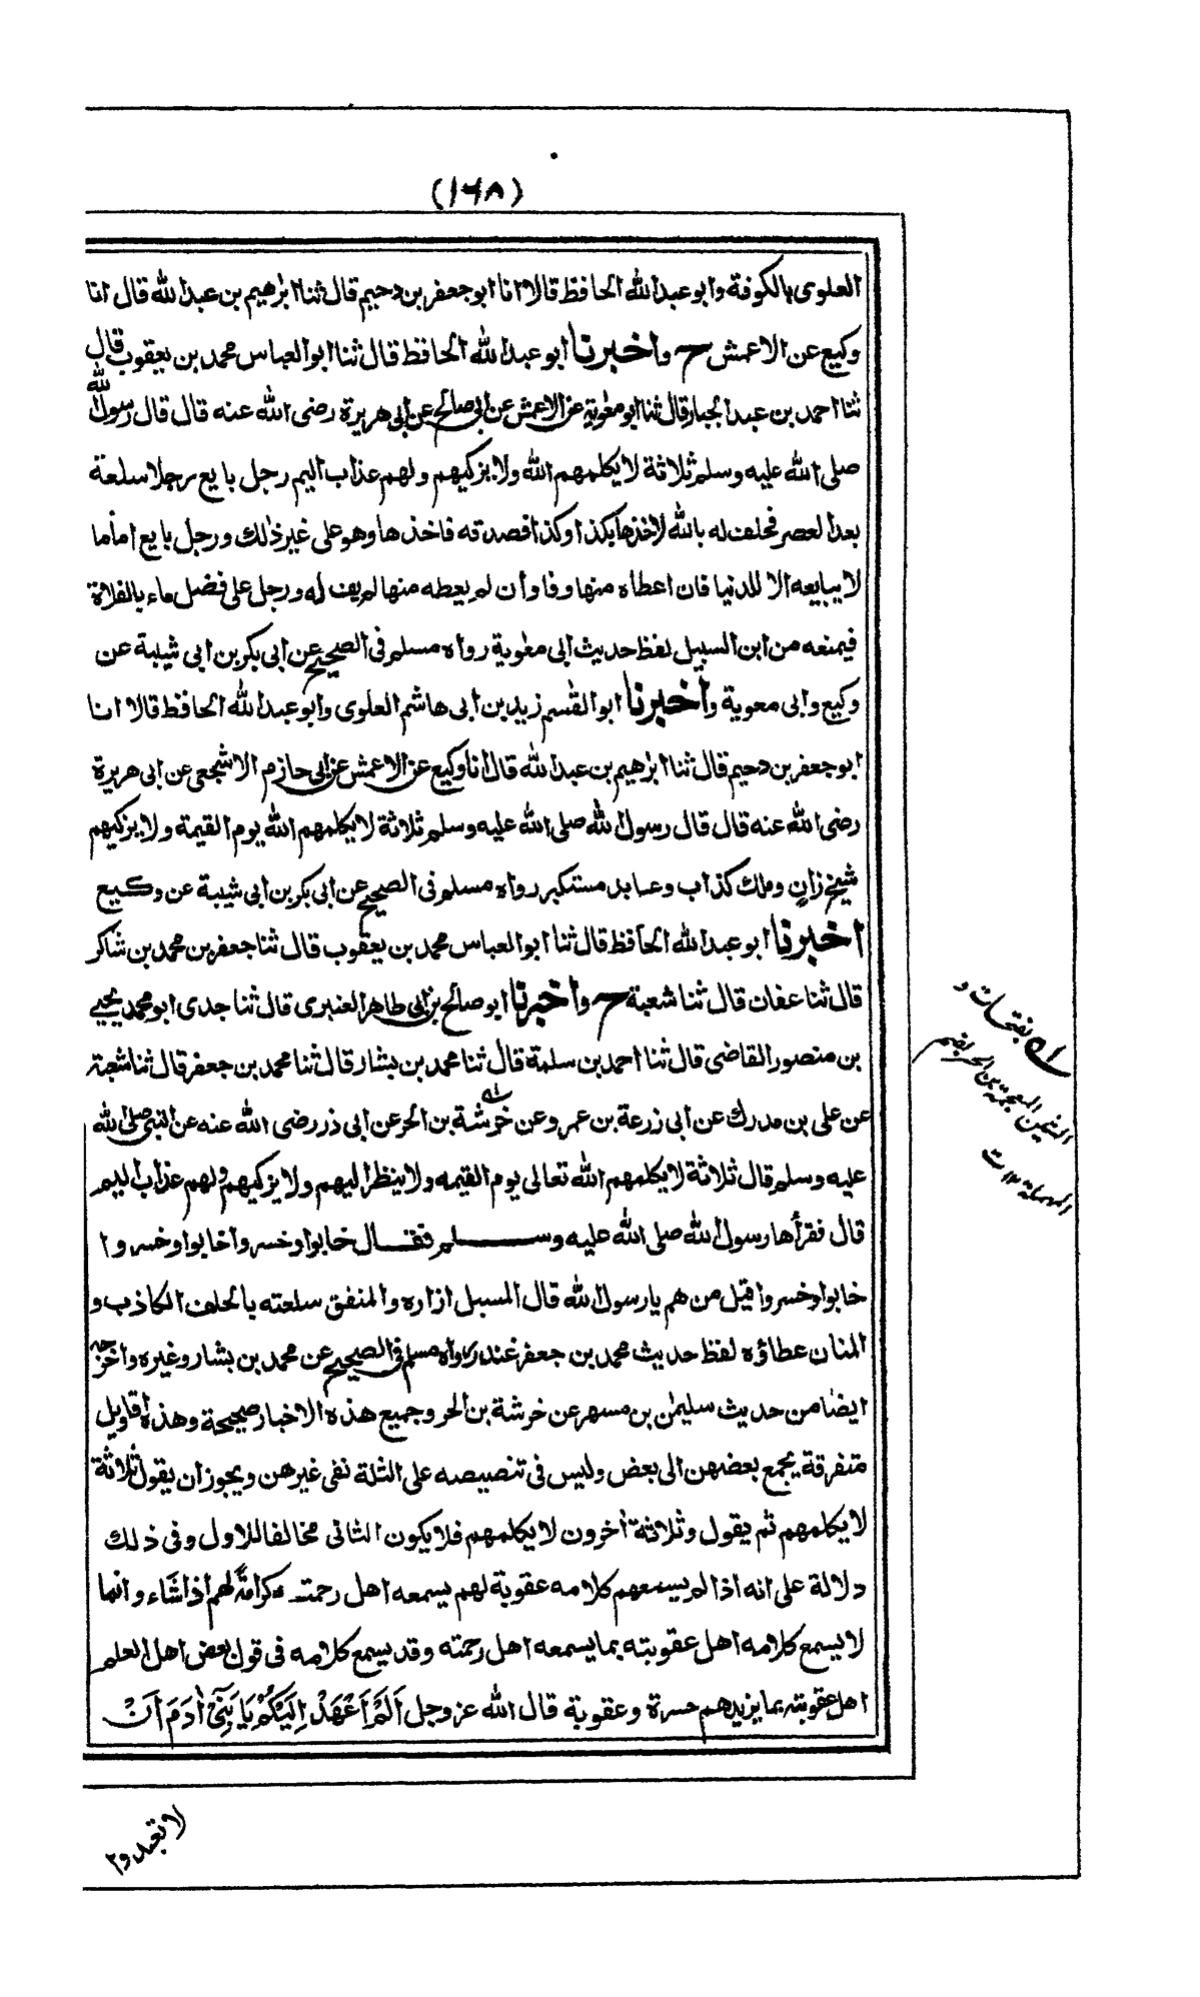 (١٦٨)
العلوى بالكوفة وابو عبد الله الحافظ قالا انا ابو جعفر بن دحيم قال ثنا ابرٰهيم بن عبد الله قال انا
وكيع عن الاعمش ح واخبرنا ابو عبد الله الحافظ قال ثنا ابو العباس محمد بن يعقوب قال
ثنا احمد بن عبد الجبار قال ثنا ابو معٰوية عن الاعمش عن ابى صالح عن ابى هريرة رضى الله عنه قال قال رسول الله
صلى الله عليه وسلم ثلاثة لا يكلمهم الله ولا يزكيهم ولهم عذاب اليم رجل بايع رجلا سلعة
بعد العصر فحلف له بالله لاخذها بكذا وكذا فصدقه فاخذها وهو على غير ذٰلك ورجل بايع امٰاما
لا يبايعه الا للدنيا فان اعطاه منها وفا وان لم يعطه منها لم يف له ورجل على فضل ماء بالفلاة
فيمنعه من ابن السبيل لفظ حديث ابى معٰوية رواه مسلم فى الصحيح عن ابى بكر بن ابى شيبة عن
وكيع وابى معوية واخبرنا ابو القٰسم زيد بن ابى هاشم العلوى وابو عبد الله الحافظ قالا انا
ابو جعفر بن دحيم قال ثنا ابرٰهيم بن عبد الله قال انا وكيع عن الاعمش عن ابى حازم الاشجعى عن ابى هريرة
رضى الله عنه قال قال رسول الله صلى الله عليه وسلم ثلاثة لا يكلمهم الله يوم القيمة ولا يزكيهم
شيخ زانٍ وملك كذاب وعابد مستكبر رواه مسلم فى الصحيح عن ابى بكر بن ابى شيبة عن وكيع
اخبرنا ابو عبد الله الحافظ قال ثنا ابو العباس محمد بن يعقوب قال ثنا جعفر بن محمد بن شاكر
قال ثنا عفان قال ثنا شعبة ح واخبرنا ابو صالح بن ابى طاهر العنبرى قال ثنا جدى ابو محمد يحيى
بن منصور القاضى قال ثنا احمد بن سلمة قال ثنا محمد بن بشار قال ثنا محمد بن جعفر قال ثنا شعبة
عن على بن مدرك عن ابى زرعة بن عمرو عن خرشة بن الحر عن ابى ذر رضى الله عنه عن النبى صلى الله
عليه وسلم قال ثلاثة لا يكلمهم الله تعالى يوم القيمه ولا ينظر اليهم ولا يزكيهم ولهم عذاب اليم
قال فقرأها رسول الله صلى الله عليه وسلم فقال خابوا وخسروا خابوا وخسروا
خابوا وخسروا قيل من هم يا رسول الله قال المسبل ازاره والمنفق سلعته بالحلف الكاذب و
المنان عطاؤه لفظ حديث محمد بن جعفر غندر رواه مسلم فى الصحيح عن محمد بن بشار وغيره واخرجه
ايضا من حديث سليمٰن بن مسهر عن خرشة بن الحر وجميع هذه الاخبار صحيحة وهذه اقاويل
متفرقة يجمع بعضهن الى بعض وليس فى تنصيصه على الثلة نفى غيرهن ويجوز ان يقول ثلاثة
لا يكلمهم ثم يقول وثلاثة اٰخرون لا يكلمهم فلا يكون الثانى مخالفا للاول وفى ذلك
دلالة على انه اذا لم يسمعهم كلامه عقوبة لهم يسمعه اهل رحمته كرامةً لهم اذا شاء وانما
لا يسمع كلامه اهل عقوبته بما يسمعه اهل رحمته وقد يسمع كلامه فى قول بعض اهل العلم
اهل عقوبته بما يزيدهم حسرة وعقوبة قال الله عز وجل اَلَمْ اَعْهَدْ اِلَيْكُمْ يَا بَنِىْ اٰدَمَ اَنْ
بفتحات و
الشين المعجمة بن الحر بضم
المهملة ١٢ ت
لا تعبدوا